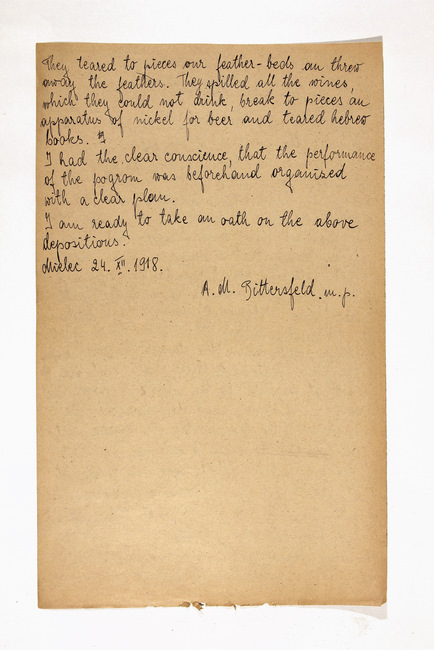 They teared to pieces our feather-beds an threw
away the feathers. They spilled all the wines,
which they could not drink, break to pieces an
apparatus of nickel for beer and teared hebrew
books.
I had the clear conscience, that the performance
of the pogrom was beforehand organized
with a clear plan.
I am ready to take an oath on the above
depositious.
Mielec 24. XII. 1918.
A. M. Bittersfeld m.p.